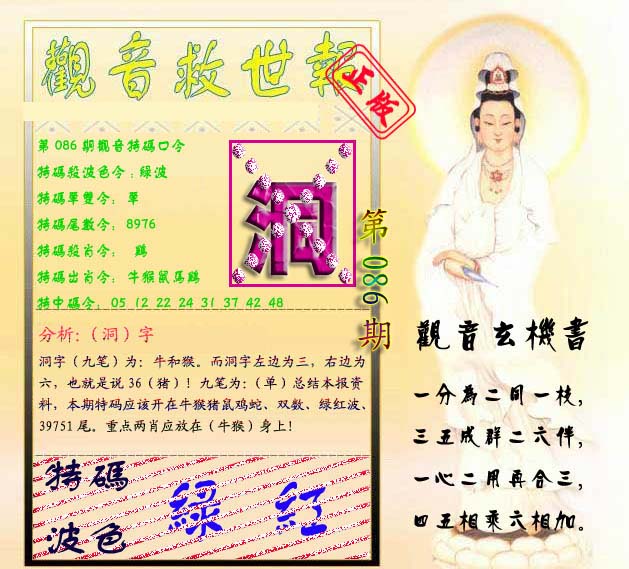 觀音救世報
正版
第086期觀音特碼口令
特碼殺波色令:綠波
特碼單雙令: 單
特碼尾數令: 8976
特碼殺肖令: 鷄
特碼出肖令: 牛猴鼠馬鷄
特中碼令: 05 12 22 24 31 37 42 48
洞
第086期
分析:（洞）字
洞字（九笔）为：牛和猴。而洞字左边为三，右边为
六，也就是说36（猪）！九笔为：（单）总结本报资
料，本期特码应该开在牛猴猪鼠鸡蛇、双数、绿红波、
39751尾。重点两肖应放在（牛猴）身上！
特碼
波色
綠 紅
觀音玄機書
一分為二間一枝，
三五成群二六伴，
一心二用再合三，
四五相乘六相加。